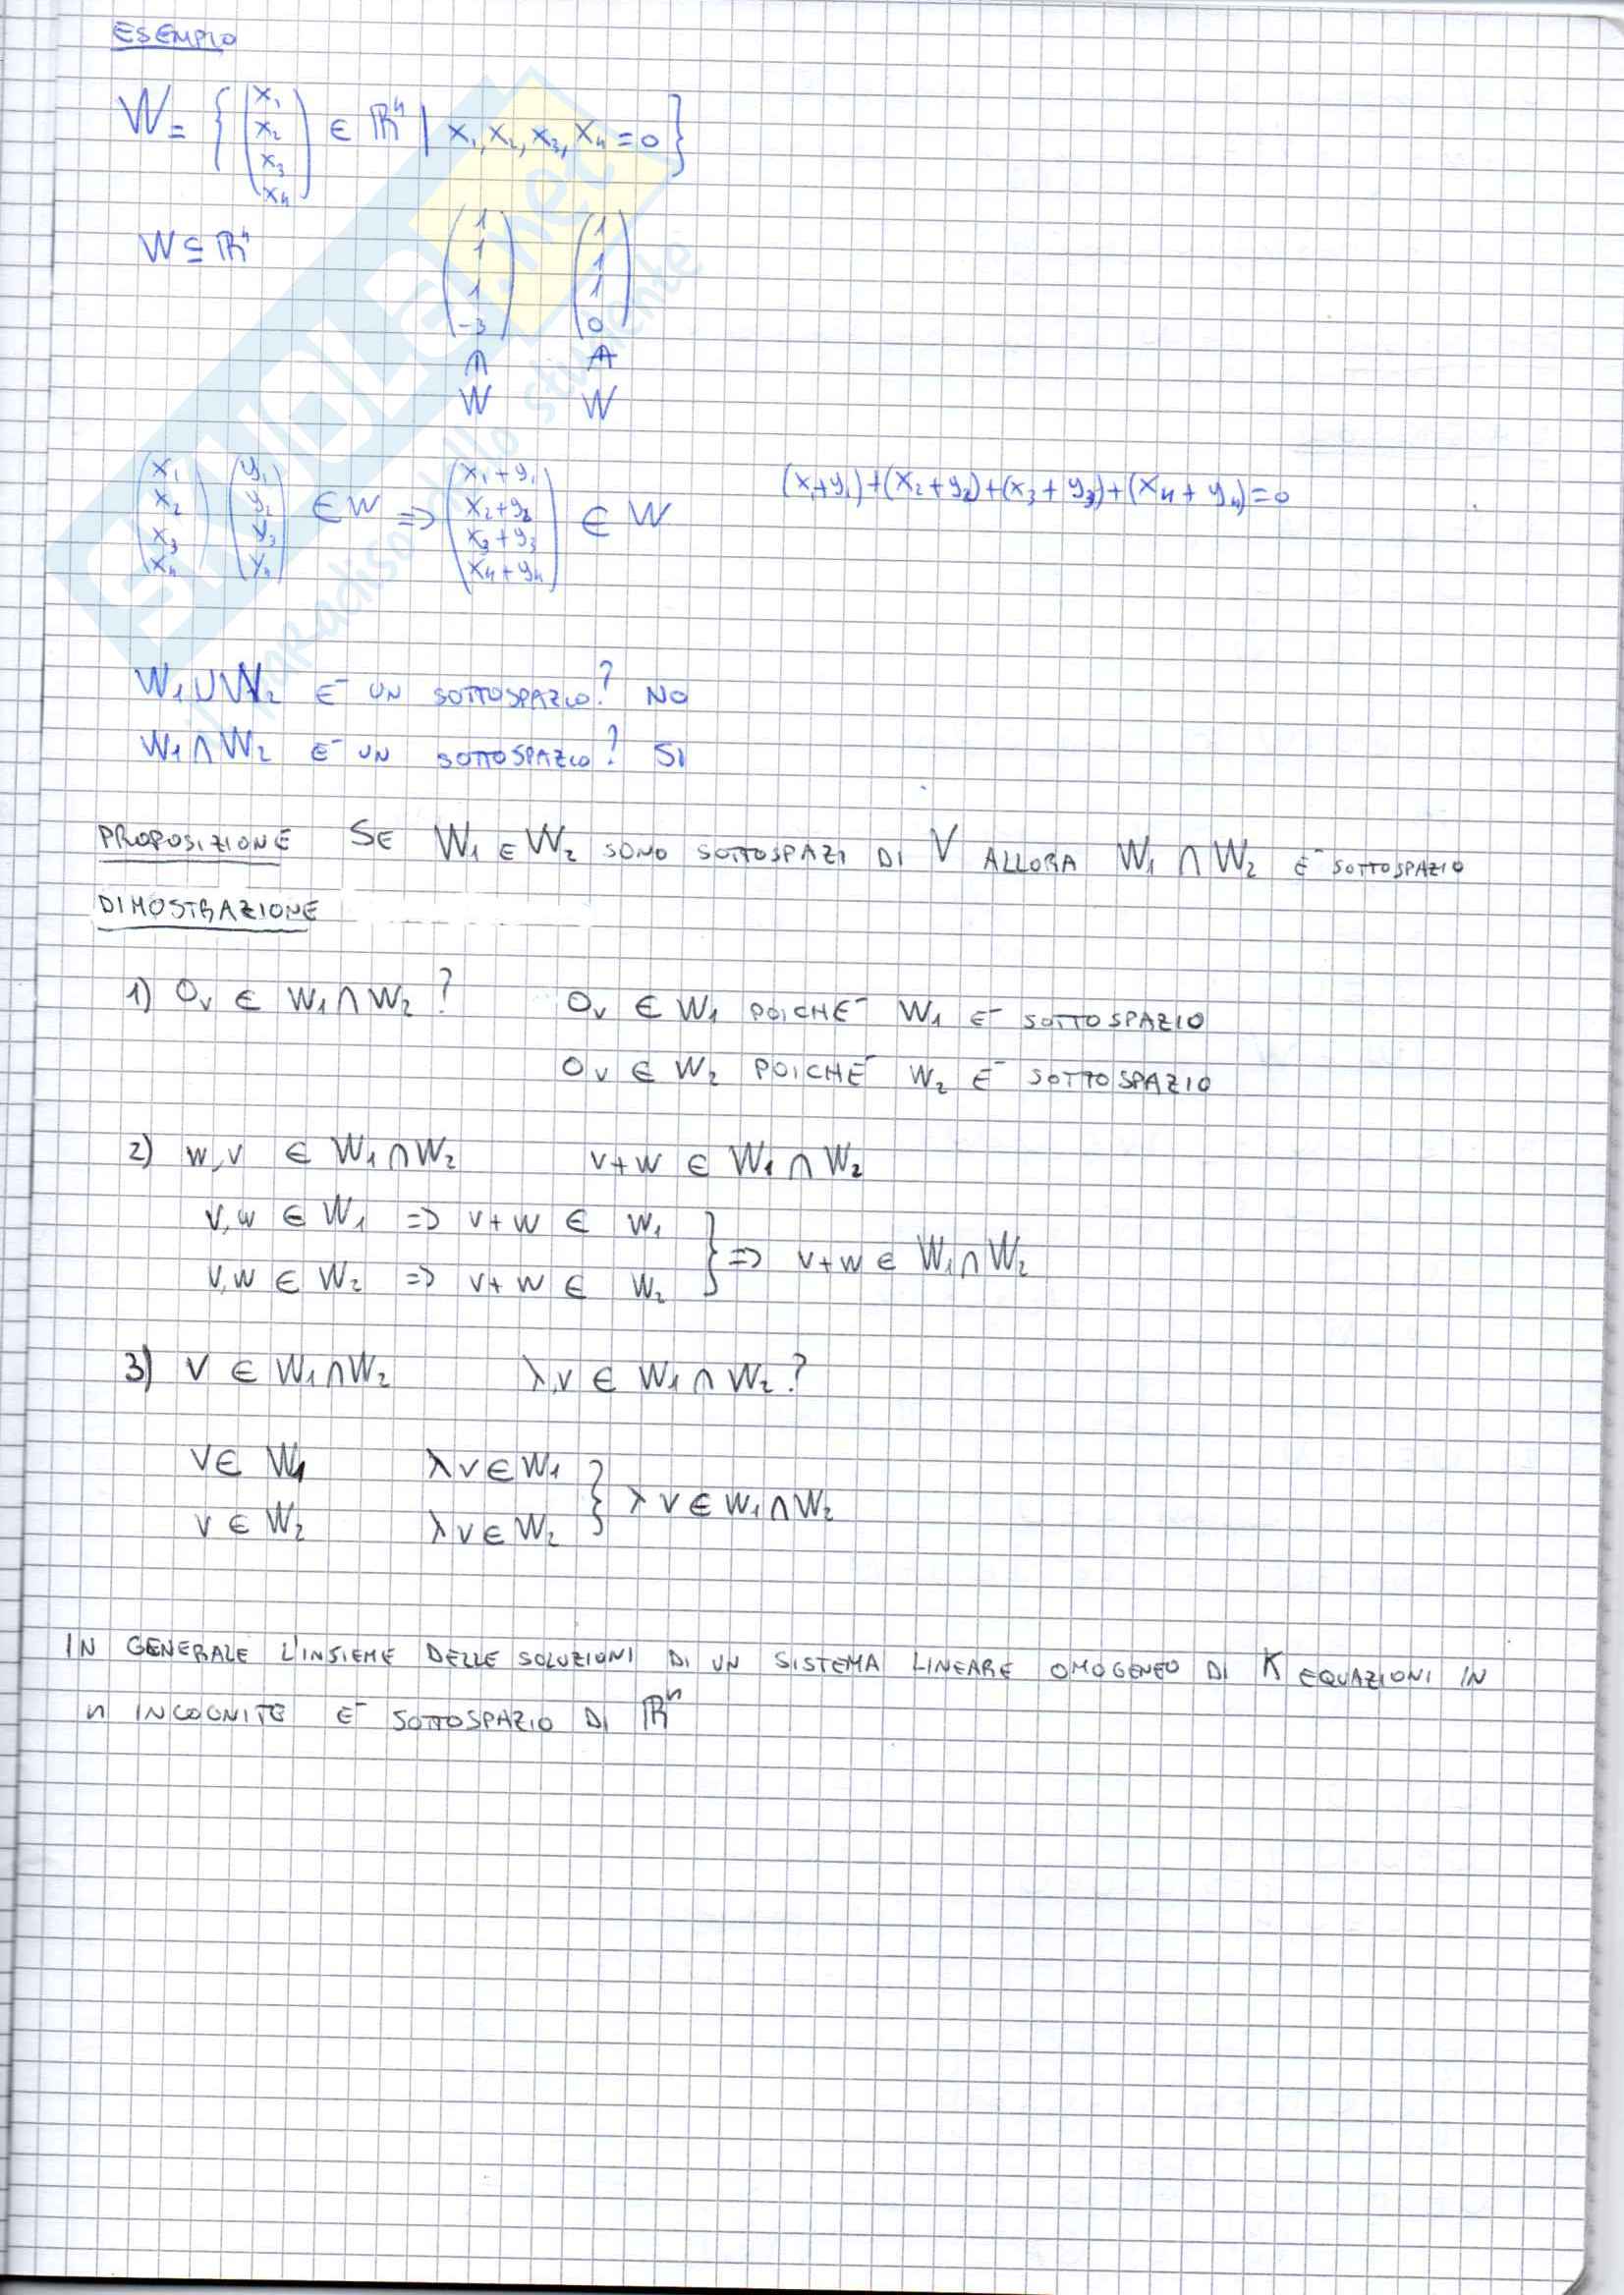 ESEMPIO
W = { (x₁ x₂ x₃ x₄) ∈ ℝ⁴ | x₁, x₂, x₃, x₄ = 0 }
W ⊆ ℝ⁴ (1 1 1 -3) ∈ W (1 1 1 0) ∉ W
(x₁ x₂ x₃ x₄) (y₁ y₂ y₃ y₄) ∈ W => (x₁+y₁ x₂+y₂ x₃+y₃ x₄+y₄) ∈ W (x₁+y₁)+(x₂+y₂)+(x₃+y₃)+(x₄+y₄)=0
W₁ ∪ W₂ E' UN SOTTOSPAZIO? NO
W₁ ∩ W₂ E' UN SOTTOSPAZIO? SI
PROPOSIZIONE SE W₁ E W₂ SONO SOTTOSPAZI DI V ALLORA W₁ ∩ W₂ E' SOTTOSPAZIO
DIMOSTRAZIONE
1) 0ᵥ ∈ W₁ ∩ W₂ ? 0ᵥ ∈ W₁ POICHE' W₁ E' SOTTOSPAZIO
0ᵥ ∈ W₂ POICHE' W₂ E' SOTTOSPAZIO
2) w, v ∈ W₁ ∩ W₂ v+w ∈ W₁ ∩ W₂
v, w ∈ W₁ => v+w ∈ W₁
v, w ∈ W₂ => v+w ∈ W₂ } => v+w ∈ W₁ ∩ W₂
3) v ∈ W₁ ∩ W₂ λ, v ∈ W₁ ∩ W₂ ?
v ∈ W₁ λv ∈ W₁
v ∈ W₂ λv ∈ W₂ } λv ∈ W₁ ∩ W₂
IN GENERALE L'INSIEME DELLE SOLUZIONI DI UN SISTEMA LINEARE OMOGENEO DI K EQUAZIONI IN
n INCOGNITE E' SOTTOSPAZIO DI ℝⁿ